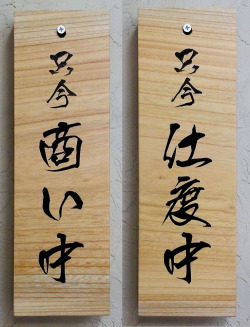 只今
商い中
只今
仕度中